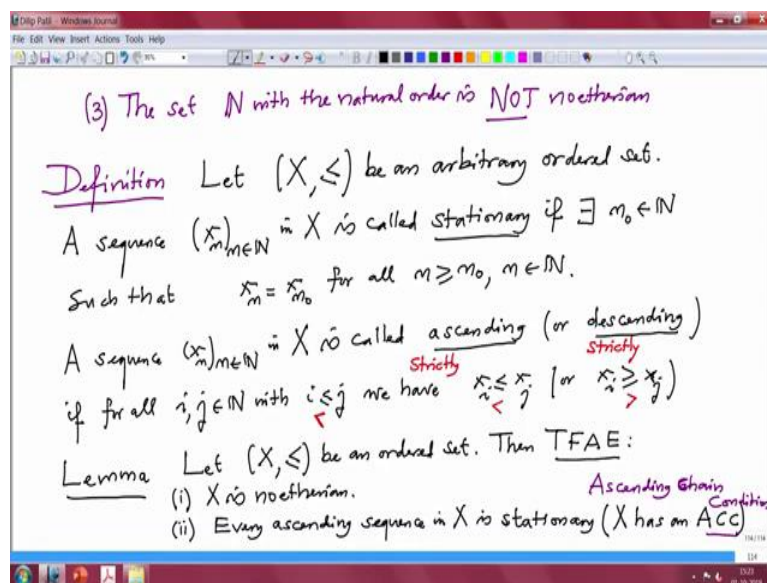 Dilip Patil - Windows Journal
File Edit View Insert Actions Tools Help
(3) The set ℕ with the natural order is NOT noetherian
Definition Let (X, ≤) be an arbitrary ordered set.
A sequence (x_m)_{m∈ℕ} in X is called stationary if ∃ m_0 ∈ ℕ
Such that x_m = x_{m_0} for all m ≥ m_0, m ∈ ℕ.
A sequence (x_m)_{m∈ℕ} in X is called ascending (or descending)
Strictly Strictly
if for all i, j ∈ ℕ with i ≤ j we have x_i ≤ x_j (or x_i ≥ x_j)
< < >
Lemma Let (X, ≤) be an ordered set. Then TFAE:
(i) X is noetherian.
Ascending Chain
Condition
(ii) Every ascending sequence in X is stationary (X has an ACC)
114/114
114
15:23